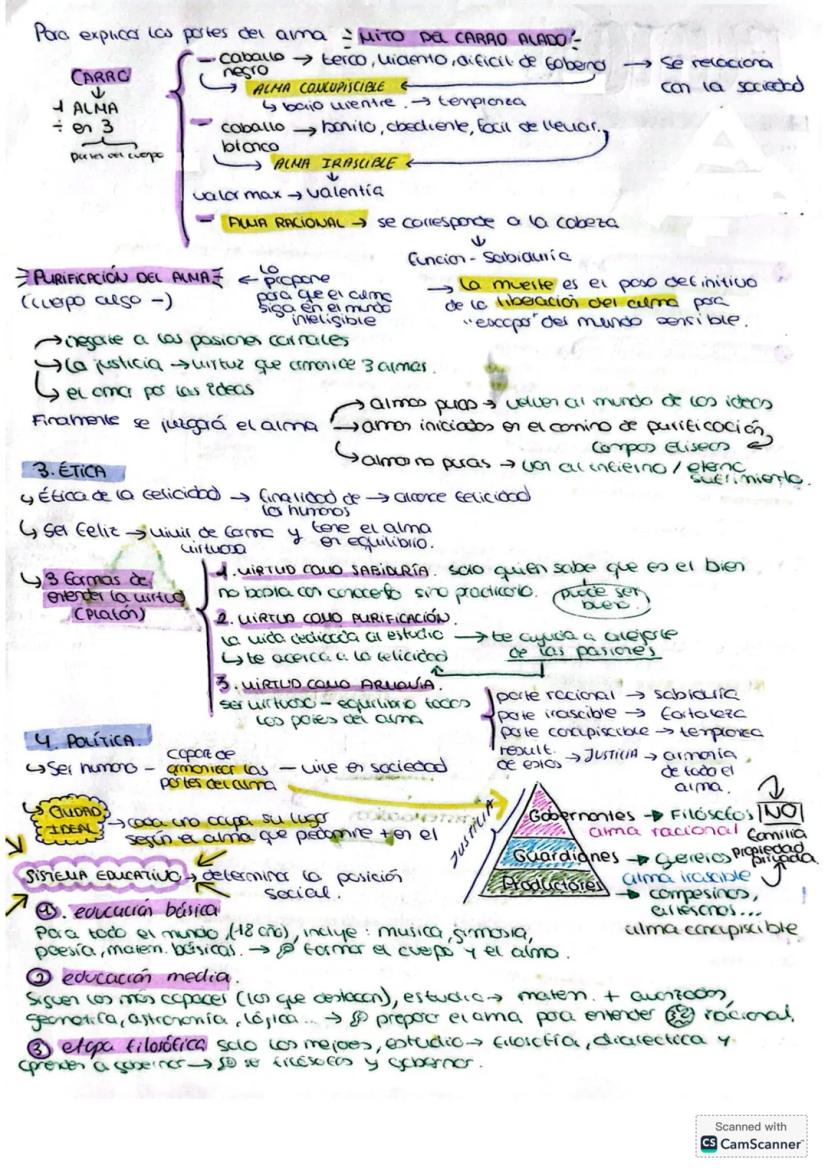 Para explicar las partes del alma → MITO DEL CARRO ALADO
CARRO
↓
1 ALMA
÷ en 3
partes del cuerpo
- caballo negro → terco, violento, dificil de gobernar → se relaciona con la sociedad
ALMA CONCUPISCIBLE
↳ bajo vientre → templanza
- caballo blanco → bonito, obediente, facil de llevar.
ALMA IRASCIBLE
↓
valor max → valentía
- ALMA RACIONAL → se corresponde a la cabeza
↓
función - Sabiduría
PURIFICACIÓN DEL ALMA ← lo propone para que el alma siga en el mundo inteligible
(cuerpo algo -)
→ La muerte es el paso definitivo
de la liberación del alma para
"escapar" del mundo sensible.
→ negarte a las pasiones carnales
→ la justicia → virtuz que armonice 3 almas.
↳ el amor por las ideas
Finalmente se juzgará el alma
→ almas puras → vuelven al mundo de las ideas
→ amos iniciados en el camino de purificación,
Campos Eliseos
→ alma no puras → van al infierno / eterno sufrimiento.
3. ÉTICA
↳ Ética de la felicidad → finalidad de los humanos → alcance felicidad
↳ Ser feliz → vivir de forma virtuosa y tene el alma en equilibrio.
↳ 3 formas de
entender la virtud
(Platón)
1. VIRTUD COMO SABIDURÍA. solo quién sabe que es el bien
no basta con conocerlo sino practicarlo. puede ser bueno.
2. VIRTUD COMO PURIFICACIÓN.
la vida dedicada al estudio → te ayuda a alejarte
↳ te acerca a la felicidad de las pasiones
3. VIRTUD COMO ARMONÍA.
ser virtuoso - equilibrio todas
las partes del alma
parte racional → sabiduría
parte irascible → fortaleza
parte concupiscible → templanza
result. de estas → JUSTICIA → armonía
de todo el
alma.
4. POLÍTICA.
↳ Ser humano - capaz de armonizar las partes del alma - vive en sociedad
↳ CIUDAD IDEAL → cada uno ocupa su lugar
según el alma que predomine + en el
JUSTICIA
Gobernantes → Filósofos
alma racional
NO
familia
propiedad
privada
Guardianes → gereros
alma irascible
Productores → campesinos,
artesanos...
alma concupiscible
SISTEMA EDUCATIVO → determina la posición
social.
①. educación básica
Para todo el mundo, (-18 año), incluye: musica, gimnasia,
poesía, matem. básicas. → formar el cuerpo y el alma.
② educación media.
Siguen los más capaces (los que destacan), estudia → matem. + avanzadas,
geometría, astronomía, lógica... → preparar el alma para entender racional.
③ etapa filosófica solo los mejores, estudio → filosofía, dialectica y
aprenden a gobernar → se filósofos y gobernar.
Scanned with
CS CamScanner